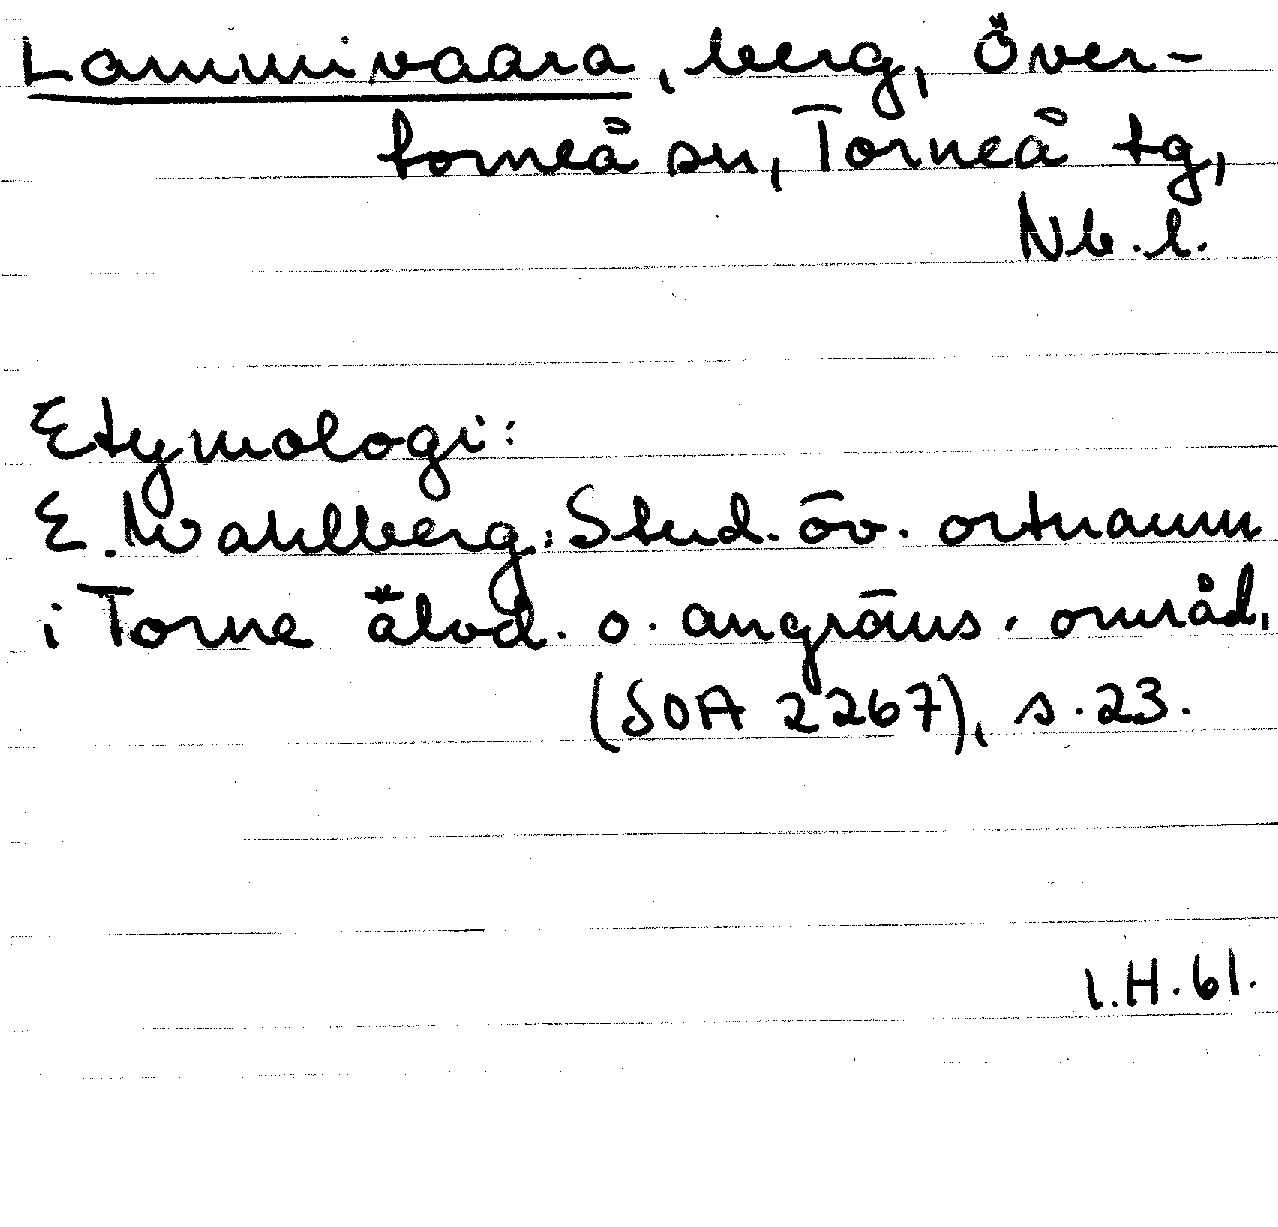 Lammivaara, berg, Över-
torneå sn, Torneå tg,
Nb.l.
Etymologi:
E. Wahlberg, Stud. öv. ortnamn
i Torne älvd. o. angräns. områd.
(SOA 2267), s. 23.
I.H. 61.